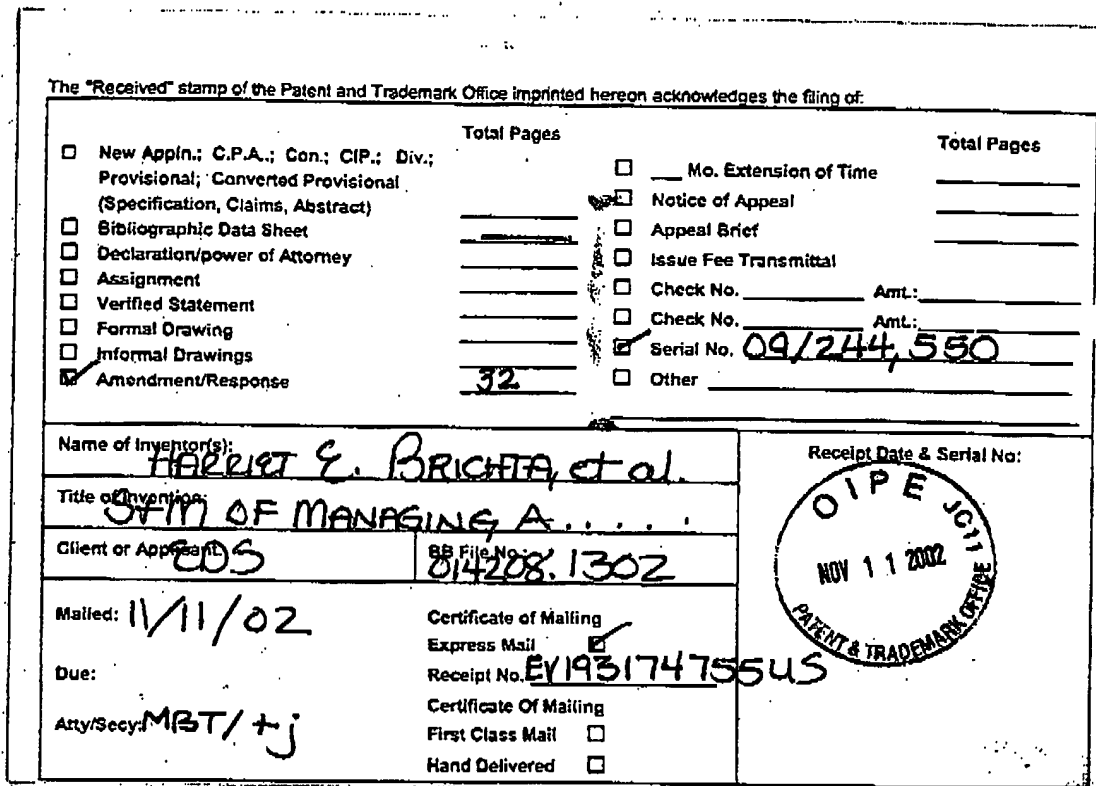 The "Received" stamp of the Patent and Trademark Office imprinted hereon acknowledges the filing of:
Total Pages
New Appln.; C.P.A.; Con.; CIP.; Div.;
Provisional; Converted Provisional
(Specification, Claims, Abstract)
Bibliographic Data Sheet
Declaration/power of Attorney
Assignment
Verified Statement
Formal Drawing
Informal Drawings
Amendment/Response 32
Total Pages
___ Mo. Extension of Time
Notice of Appeal
Appeal Brief
Issue Fee Transmittal
Check No. Amt.:
Check No. Amt.:
Serial No. 09/244,550
Other
Name of Inventor(s):
HARRIET E. BRICHTA, et al.
Title of Invention:
S+M OF MANAGING A.....
Client or Applicant: EDS
BB File No.:
014208.1302
Mailed: 11/11/02
Due:
Atty/Secy: MBT/tj
Certificate of Mailing
Express Mail
Receipt No. EV193174755US
Certificate Of Mailing
First Class Mail
Hand Delivered
Receipt Date & Serial No:
OIPE JC11
NOV 11 2002
PATENT & TRADEMARK OFFICE